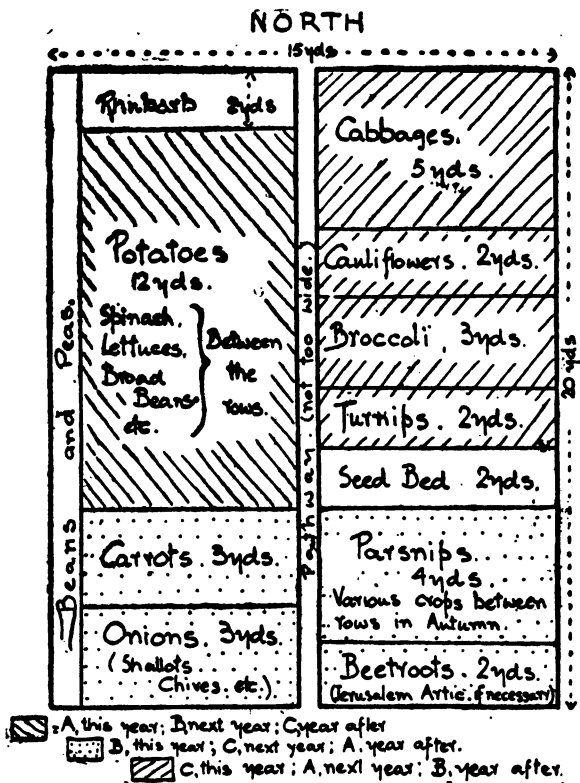 NORTH
15yds
Rhubarb 2yds
Potatoes
12yds.
Spinach,
Lettuces,
Broad
Beans
etc.
Between
the
rows.
Carrots. 3yds.
Onions. 3yds.
(Shallots.
Chives. etc.)
Beans and Peas.
Pathway. (not too wide.)
Cabbages.
5yds.
Cauliflowers. 2yds.
Broccoli. 3yds.
Turnips. 2yds.
Seed Bed 2yds.
Parsnips.
4yds.
Various crops between
rows in Autumn.
Beetroots. 2yds.
(Jerusalem Artic. if necessary)
20yds
A, this year; B, next year; C, year after
B, this year; C, next year; A, year after.
C, this year; A, next year; B, year after.